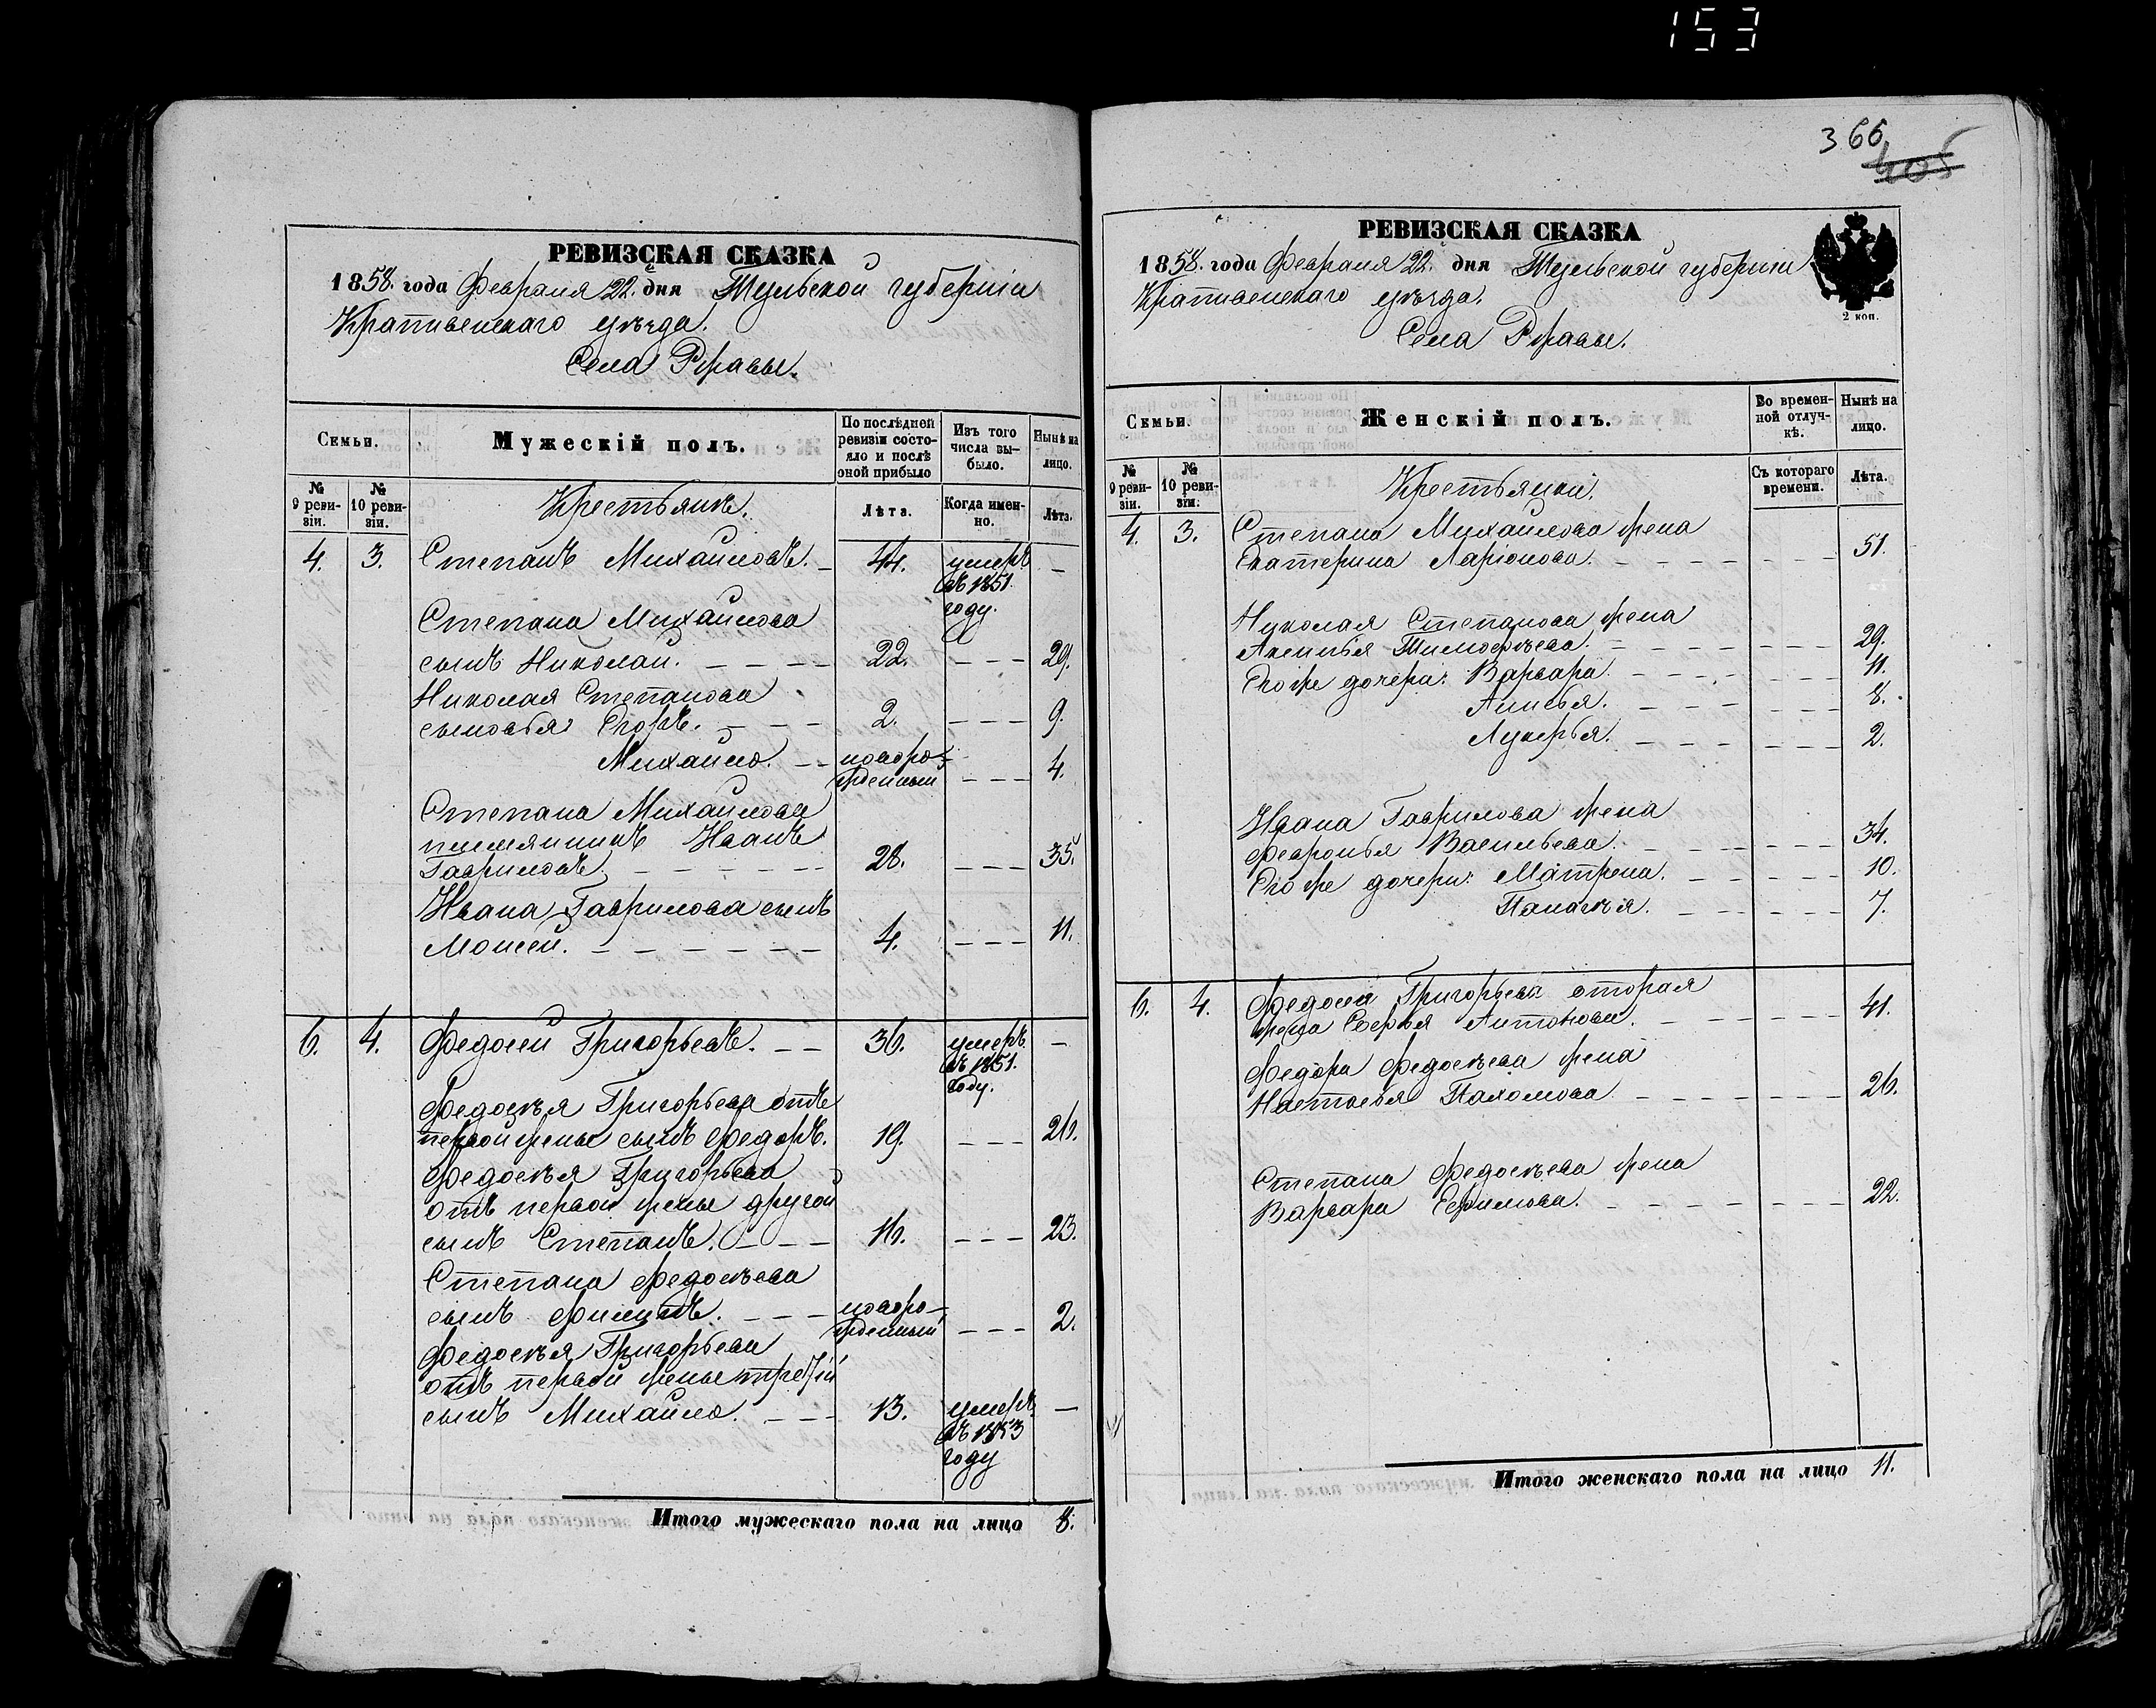 153
366
405
РЕВИЗСКАЯ СКАЗКА
1858. года Февраля 22. дня Тульской губерніи
Крапивенскаго уѣзда.
Села Ржавы.
Семьи.
Мужескій полъ.
По послѣдней ревизіи состояло и послѣ оной прибыло
Изъ того числа выбыло.
Нынѣ на лицо.
№ 9 ревизіи.
№ 10 ревизіи.
Крестьянъ.
Лѣта.
Когда именно.
Лѣта.
4. 3. Степанъ Михайловъ. — 44. умеръ —
въ 1851.
году.
Степана Михайлова
сынъ Николай. — — — — 22. — — — 29.
Николая Степанова
сыновья: Егоръ. — — — 2. — — — 9.
Михайло. — — новоро-
жденный — — — 4.
Степана Михайлова
племянникъ Иванъ
Гавриловъ. — — — — — — 28. — — — 35.
Ивана Гаврилова сынъ
Моисей. — — — — — — 4. — — — 11.
6. 4. Федосей Григорьевъ. — — 36. умеръ —
въ 1851.
году.
Федосѣя Григорьева отъ
первой жены сынъ Федоръ. 19. — — — 26.
Федосѣя Григорьева
отъ первой жены другой
сынъ Степанъ. — — — 16. — — — 23.
Степана Федосѣева
сынъ Филипъ. — — — новоро-
жденный — — — 2.
Федосѣя Григорьева
отъ первой жены третій
сынъ Михайло. — — — 13. умеръ —
въ 1853
году
Итого мужескаго пола на лицо 8.
РЕВИЗСКАЯ СКАЗКА
1858. года Февраля 22. дня Тульской губерніи
Крапивенскаго уѣзда.
2 коп.
Села Ржавы.
Семьи.
Женскій полъ.
Во временной отлучкѣ.
Нынѣ на лицо.
№ 9 ревизіи.
№ 10 ревизіи.
Крестьянки.
Съ котораго времени.
Лѣта.
4. 3. Степана Михайлова жена
Екатерина Ларіонова. — — — — — — — 51.
Николая Степанова жена
Аксинья Тимофѣева. — — — — — — — 29.
Его же дочери: Варвара. — — — — — — — 11.
Анисья. — — — — — — 8.
Лукерья. — — — — — — 2.
Ивана Гаврилова жена
Февронья Васильева. — — — — — — — 34.
Его же дочери: Матрена. — — — — — — 10.
Палагѣя. — — — — — — 7.
6. 4. Федосея Григорьева вторая
жена Софья Антонова. — — — — — — 41.
Федора Федосѣева жена
Настасья Пахомова — — — — — — — 26.
Степана Федосѣева жена
Варвара Ефимова. — — — — — — — 22.
Итого женскаго пола на лицо 11.